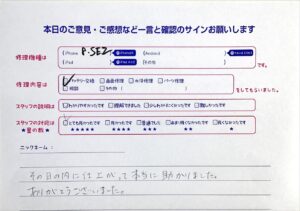 本日のご意見・ご感想など一言と確認のサインお願いします
修理機種は
iPhone P.SE2
Android
iPad
その他
です。
修理内容は
バッテリー交換 画面修理 水没修理 パーツ修理
その他
をしてもらいました。
スタッフの説明は
わかりやすかったです 理解できました 少しわかりにくかったです 難しかったです
スタッフの対応は
★星の数★
とても良かったです 良かったです 普通でした
★★★★★ ★★★★ ★★★ ★★ ★
ニックネーム:
その日の内に仕上がって本当に助かりました。
ありがとうございました。